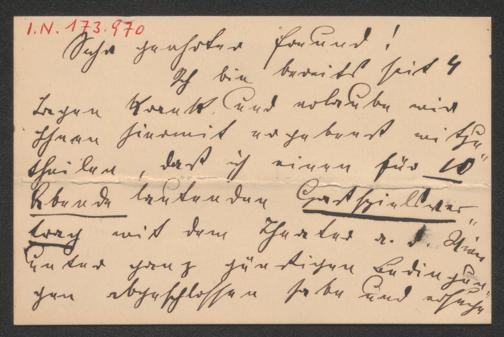 I.N. 173.970
Sehr geehrter Freund!
Ich bin bereits seit 4
Tagen krank und erlaube mir
Ihnen hiermit ergebenst mitzu-
theilen, daß ich einen für 10
Abende lautenden Gastspielver-
trag mit dem Theater a. d. Wien
unter ganz günstigen Bedingun-
gen abgeschlossen habe und ersuche